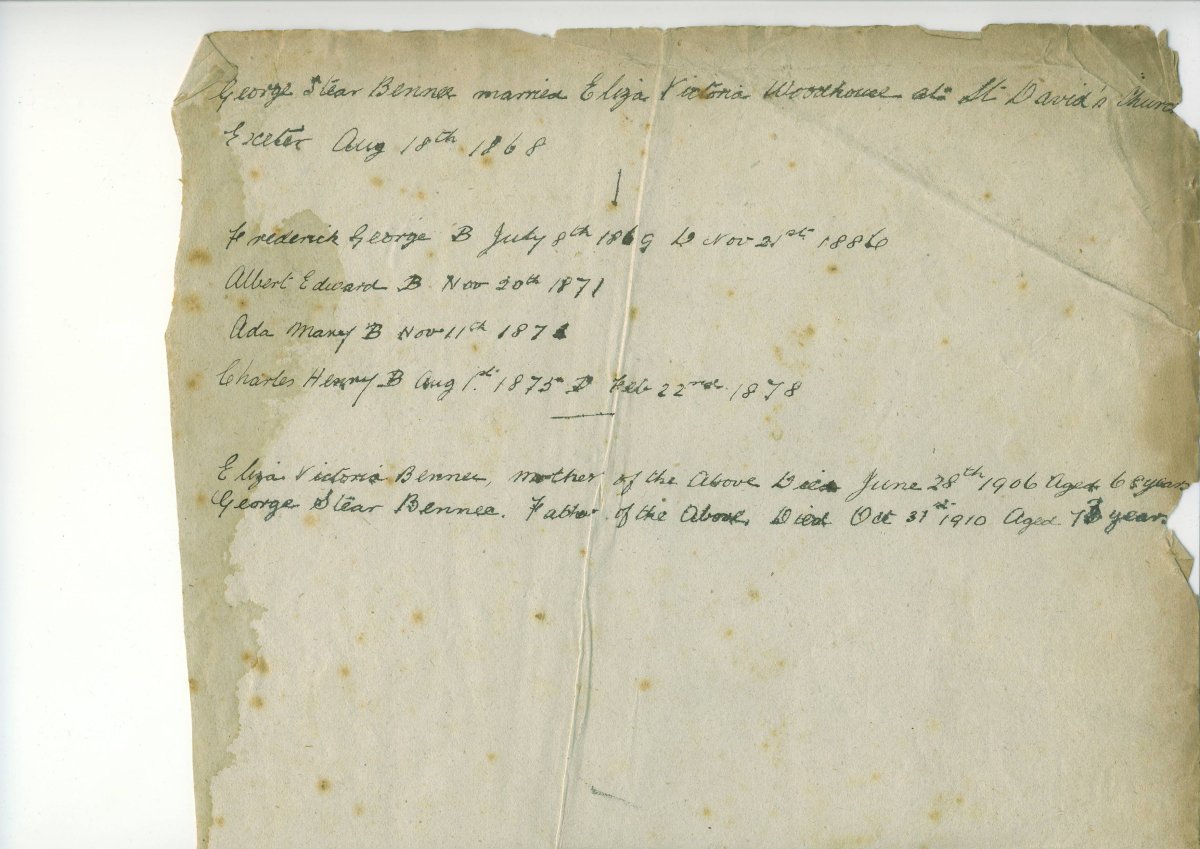 George Stear Bennee married Eliza Victoria Woodhouse at St David's Church
Exeter Aug 18th 1868
Frederick George B July 8th 1869 D Nov 21st 1886
Albert Edward B Nov 20th 1871
Ada Mary B Nov 11th 187
Charles Henry B Aug 1st 1875 D Feb 22nd 1878
Eliza Victoria Bennee, mother of the Above Died June 28th 1906 Aged 68 years
George Stear Bennee. Father of the Above, Died Oct 31st 1910 Aged years